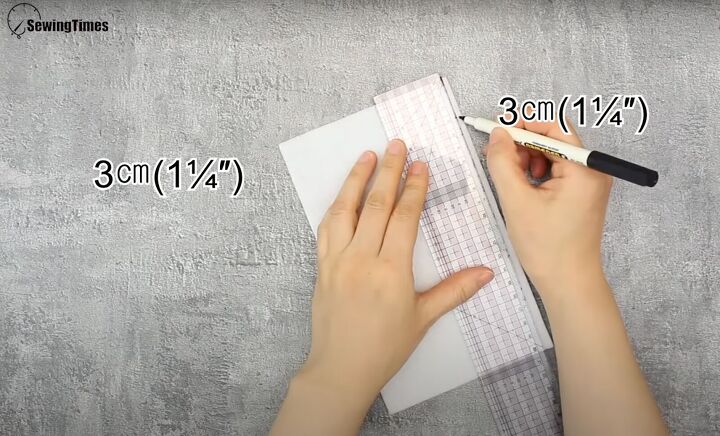 SewingTimes
3cm(1¼")
3cm(1¼")